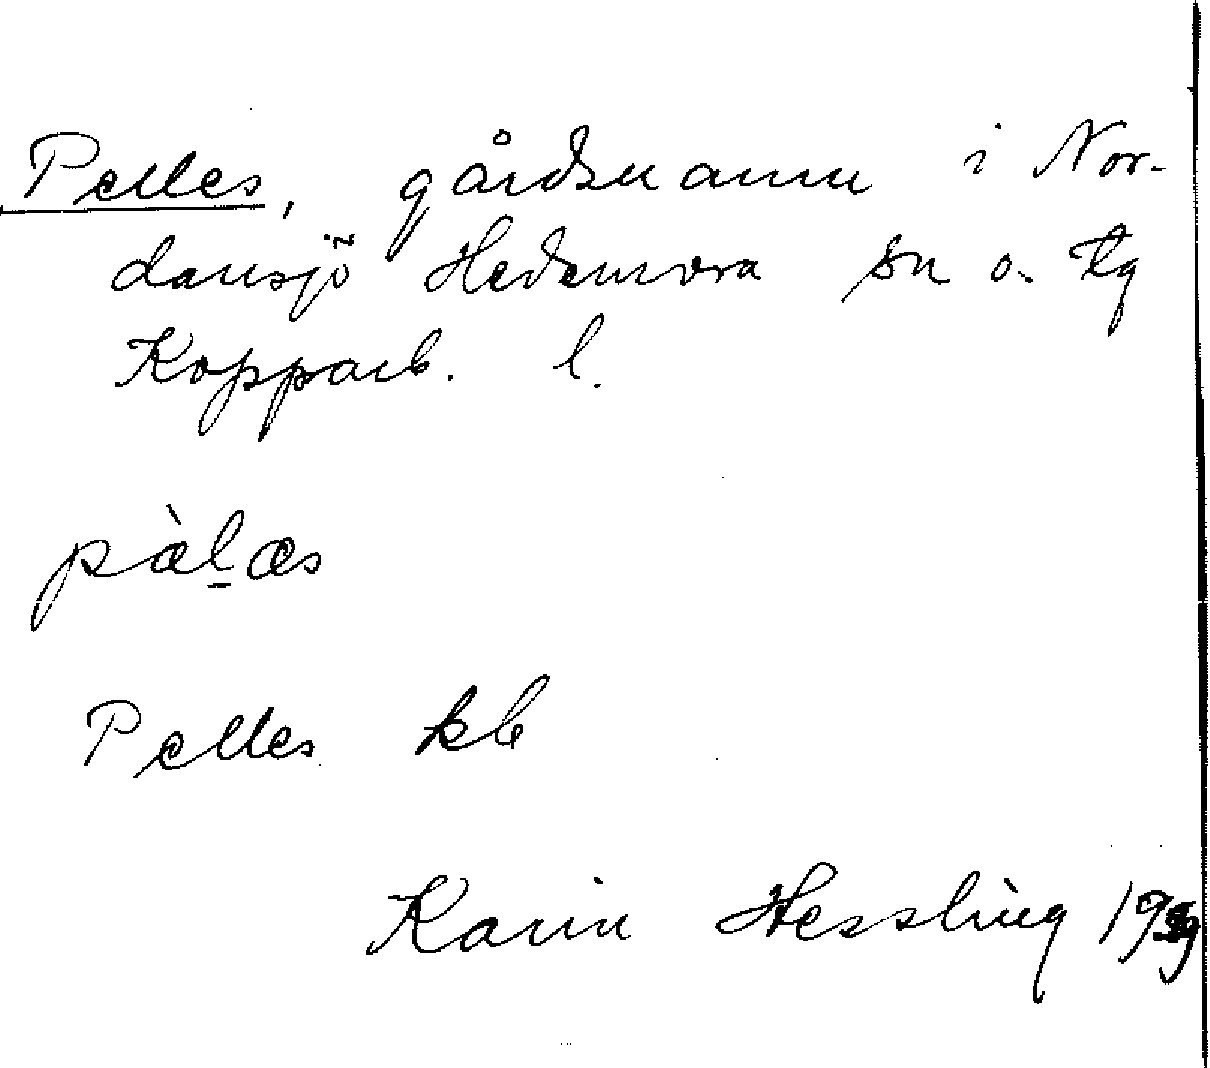 Pelles, gårdsnamn i Nor-
dansjö Hedemora sn o. tg
Kopparb. l.
pæ̀l̠æs
Pelles kb
Karin Hessling